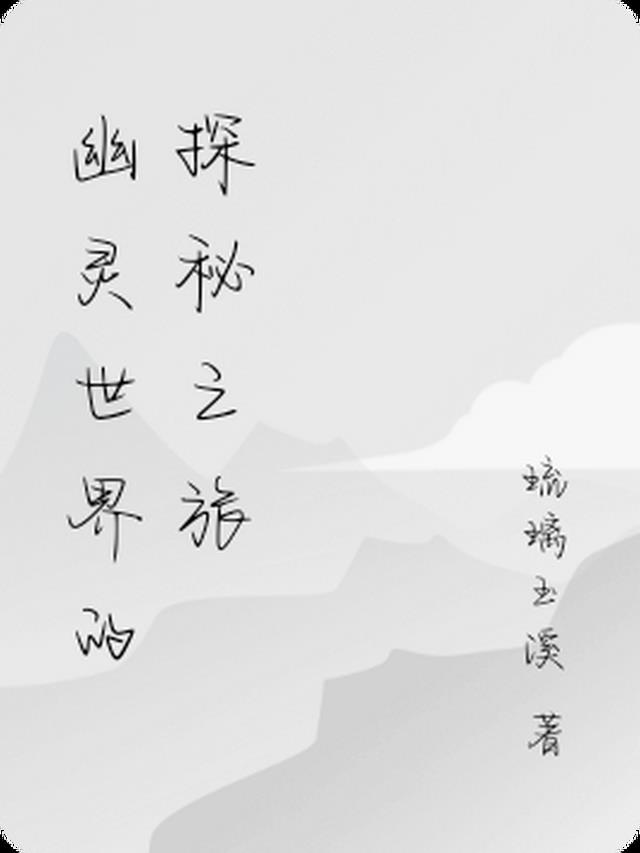 幽灵世界的
探秘之旅
琉璃玉溪 著